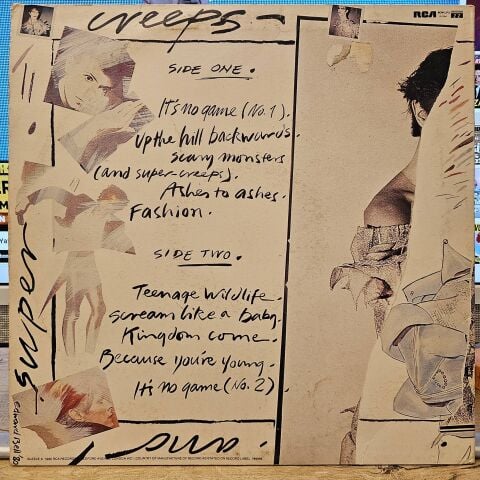 creeps
RCA
SIDE ONE.
It's no game (No.1).
Up the hill backwards.
scary monsters
(and super-creeps).
Ashes to ashes.
Fashion.
SIDE TWO.
Teenage Wildlife.
scream like a baby.
Kingdom come.
Because you're young.
It's no game (No.2).
super
and